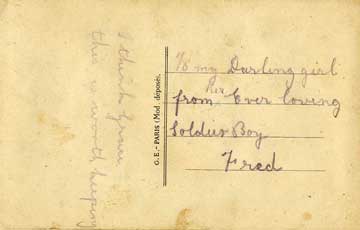 I think you
this is worth keeping
G. E. - PARIS (Mod. déposés.
To my Darling girl
from her Ever loving
Soldier Boy
Fred